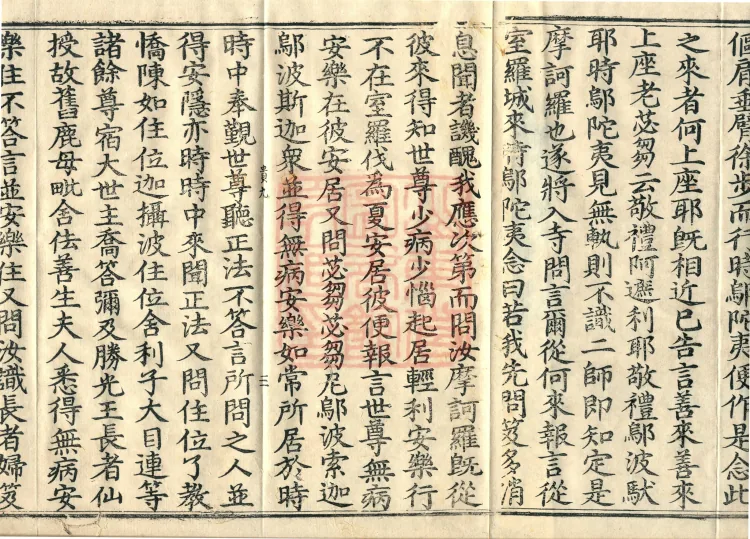 傴肩垂臂徐步而行時鄔陀夷便作是念此
之來者何上座耶旣相近已告言善來善來
上座老苾芻云敬禮阿遮利耶敬禮鄔波馱
耶時鄔陀夷見無軌則不識二師即知定是
摩訶羅也遂將入寺問言爾從何來報言從
室羅城來時鄔陀夷念曰若我先問笈多消
息聞者譏醜我應次第而問汝摩訶羅旣從
彼來得知世尊少病少惱起居輕利安樂行
不在室羅伐爲夏安居彼便報言世尊無病
安樂在彼安居又問苾芻苾芻尼鄔波索迦
鄔波斯迦衆並得無病安樂如常所居於時
時中奉覲世尊聽正法不答言所問之人並
得安隱亦時時中來聞正法又問住位了教
憍陳如住位迦攝波住位舍利子大目連等
諸餘尊宿大世主喬答彌及勝光王長者仙
授故舊鹿母毗舍佉善生夫人悉得無病安
樂住不答言並安樂住又問汝識長者婦笈